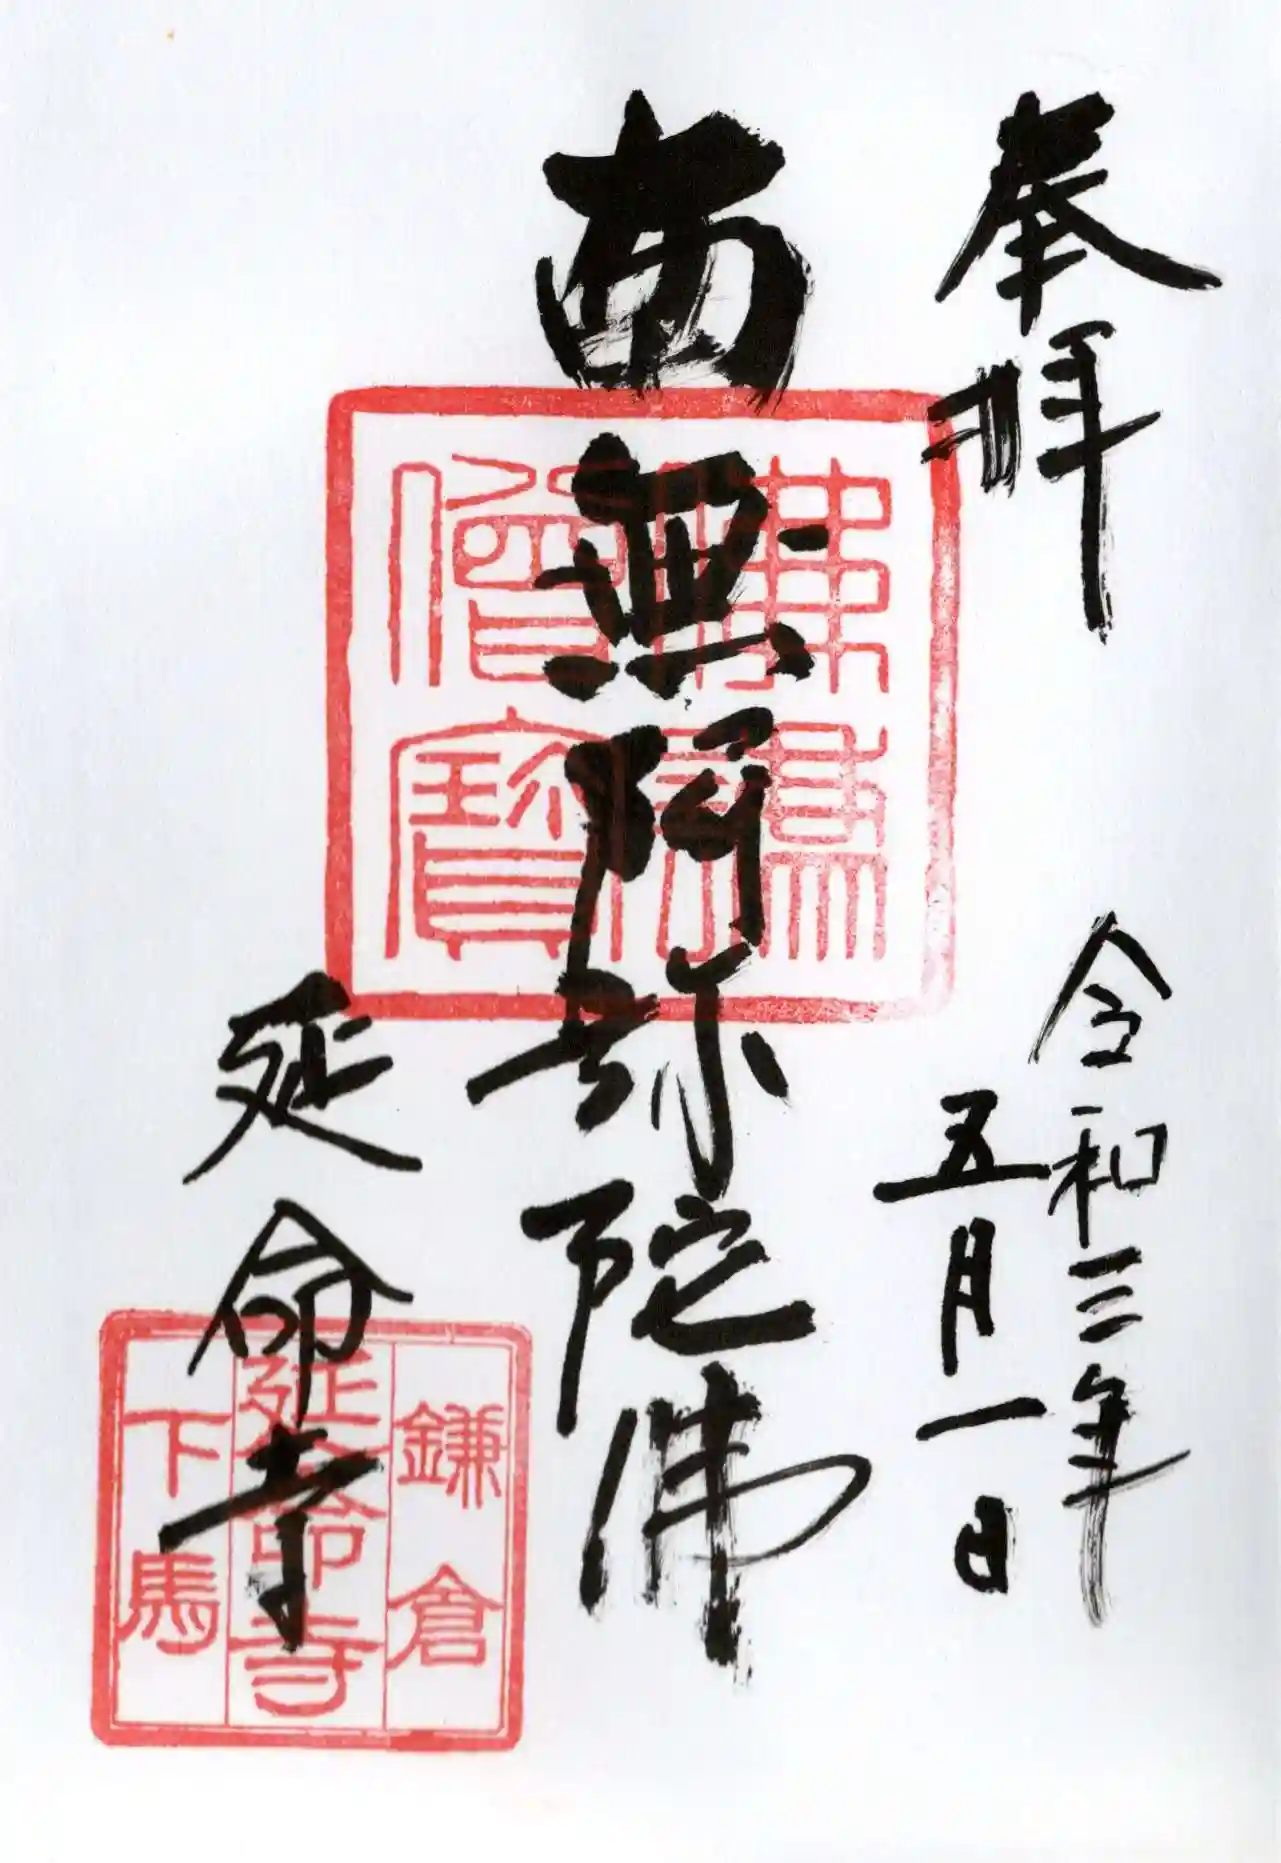 奉拝
令和三年
五月一日
南無阿弥陀佛
延命寺
佛法僧寶
鎌倉
延命寺
下馬